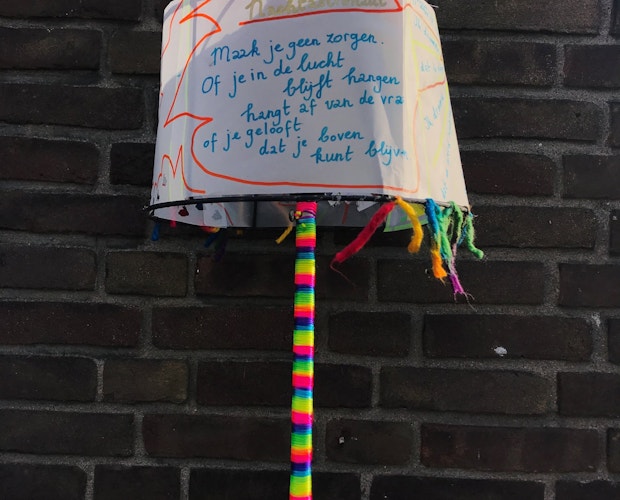 Maak je geen zorgen.
Of je in de lucht
blijft hangen
hangt af van de vra
of je gelooft
dat je boven
kunt blijven